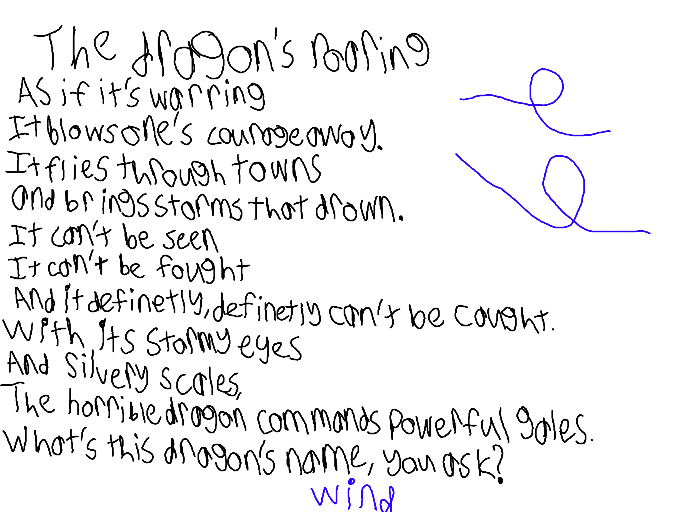 The dragon's roaring
As if it's warring
It blows one's courage away.
It flies through towns
and brings storms that drown.
It can't be seen
It can't be fought
And it definetly, definetly can't be caught.
With its stormy eyes
And silvery scales,
The horrible dragon commands powerful gales.
What's this dragon's name, you ask?
wind